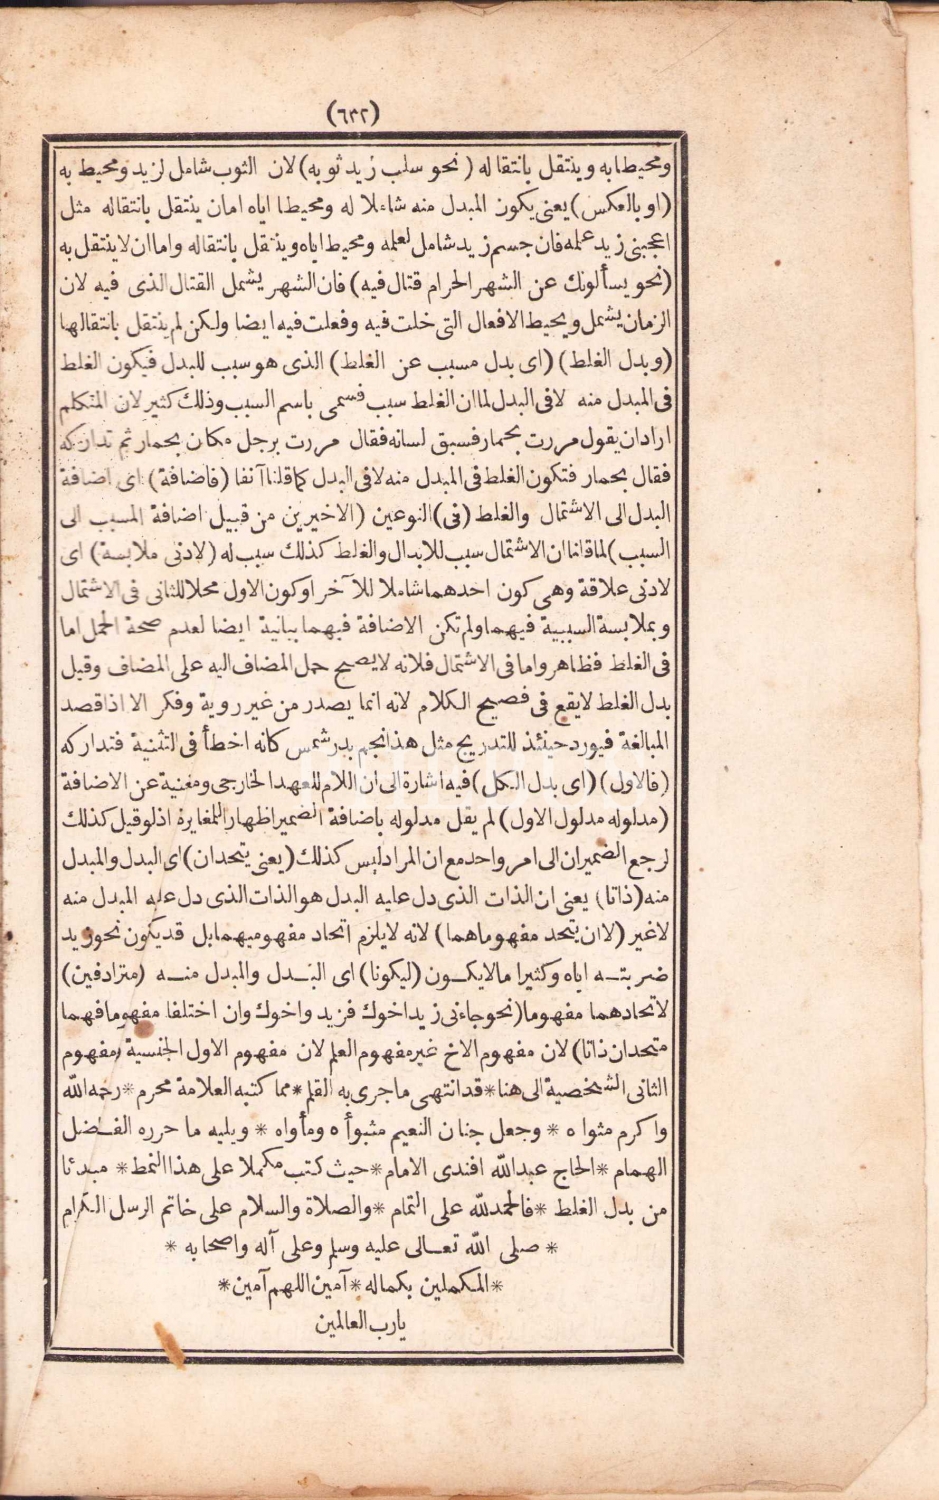 (٦٣٢)
ومحيطا به وينتقل بانتقاله (نحو سلب زيد ثوبه) لان الثوب شامل لزيد ومحيط به
(او بالعكس) يعنى يكون المبدل منه شاملا له ومحيطا اياه امان ينتقل بانتقاله مثل
اعجبنى زيد علمه فان جسم زيد شامل لعلمه ومحيط اياه وينتقل بانتقاله واما ان لا ينتقل به
(نحو يسألونك عن الشهر الحرام قتال فيه) فان الشهر يشمل القتال الذى فيه لان
الزمان يشمل ويحيط الافعال التى خلت فيه وفعلت فيه ايضا ولكن لم ينتقل بانتقالها
(وبدل الغلط) (اى بدل مسبب عن الغلط) الذى هو سبب للبدل فيكون الغلط
فى المبدل منه لا فى البدل لما ان الغلط سبب فسمى باسم السبب وذلك كثير لان المتكلم
اراد ان يقول مررت بحمار فسبق لسانه فقال مررت برجل مكان بحمار ثم تداركه
فقال بحمار فتكون الغلط فى المبدل منه لا فى البدل كما قلنا آنفا (فاضافة) اى اضافة
البدل الى الاشتمال والغلط (فى) النوعين (الاخيرين من قبيل اضافة المسبب الى
السبب) لما قلنا ان الاشتمال سبب للابدال والغلط كذلك سبب له (لادنى ملابسة) اى
لادنى علاقة وهى كون احدهما شاملا للآخر او كون الاول محلا للثانى فى الاشتمال
وبملابسة السببية فيهما ولم تكن الاضافة فيهما بيانية ايضا لعدم صحة الحمل اما
فى الغلط فظاهر واما فى الاشتمال فلانه لا يصح حمل المضاف اليه على المضاف وقيل
بدل الغلط لا يقع فى فصيح الكلام لانه انما يصدر من غير روية وفكر الا اذا قصد
المبالغة فيورد حينئذ للتدريج مثل هذا نجم بدر شمس كانه اخطأ فى التثنية فتداركه
(فالاول) (اى بدل الكل) فيه اشارة الى ان اللام للعهد الخارجى ومغنية عن الاضافة
(مدلوله مدلول الاول) لم يقل مدلوله باضافة الضمير اظهارا للمغايرة اذ لو قيل كذلك
لرجع الضميران الى امر واحد مع ان المراد ليس كذلك (يعنى يتحدان) اى البدل والمبدل
منه (ذاتا) يعنى ان الذات الذى دل عليه البدل هو الذات الذى دل عليه المبدل منه
لا غير (لا ان يتحد مفهوماهما) لانه لا يلزم اتحاد مفهوميهما بل قد يكون نحو زيد
ضربته اياه وكثيرا ما لا يكون (ليكونا) اى البدل والمبدل منه (مترادفين)
لاتحادهما مفهوما (نحو جاءنى زيد اخوك فزيد واخوك وان اختلفا مفهوما فهما
متحدان ذاتا) لان مفهوم الاخ غير مفهوم العلم لان مفهوم الاول الجنسية ومفهوم
الثانى الشخصية الى هنا * قد انتهى ما جرى به القلم * مما كتبه العلامة محرم * رحمه الله
واكرم مثواه * وجعل جنان النعيم متبوأه ومأواه * ويليه ما حرره الفاضل
الهمام * الحاج عبدالله افندى الامام * حيث كتب مكملا على هذا النمط * مبدئا
من بدل الغلط * فالحمد لله على التمام * والصلاة والسلام على خاتم الرسل الكرام
* صلى الله تعالى عليه وسلم وعلى آله واصحابه *
* المكملين بكماله * آمين اللهم آمين *
يارب العالمين